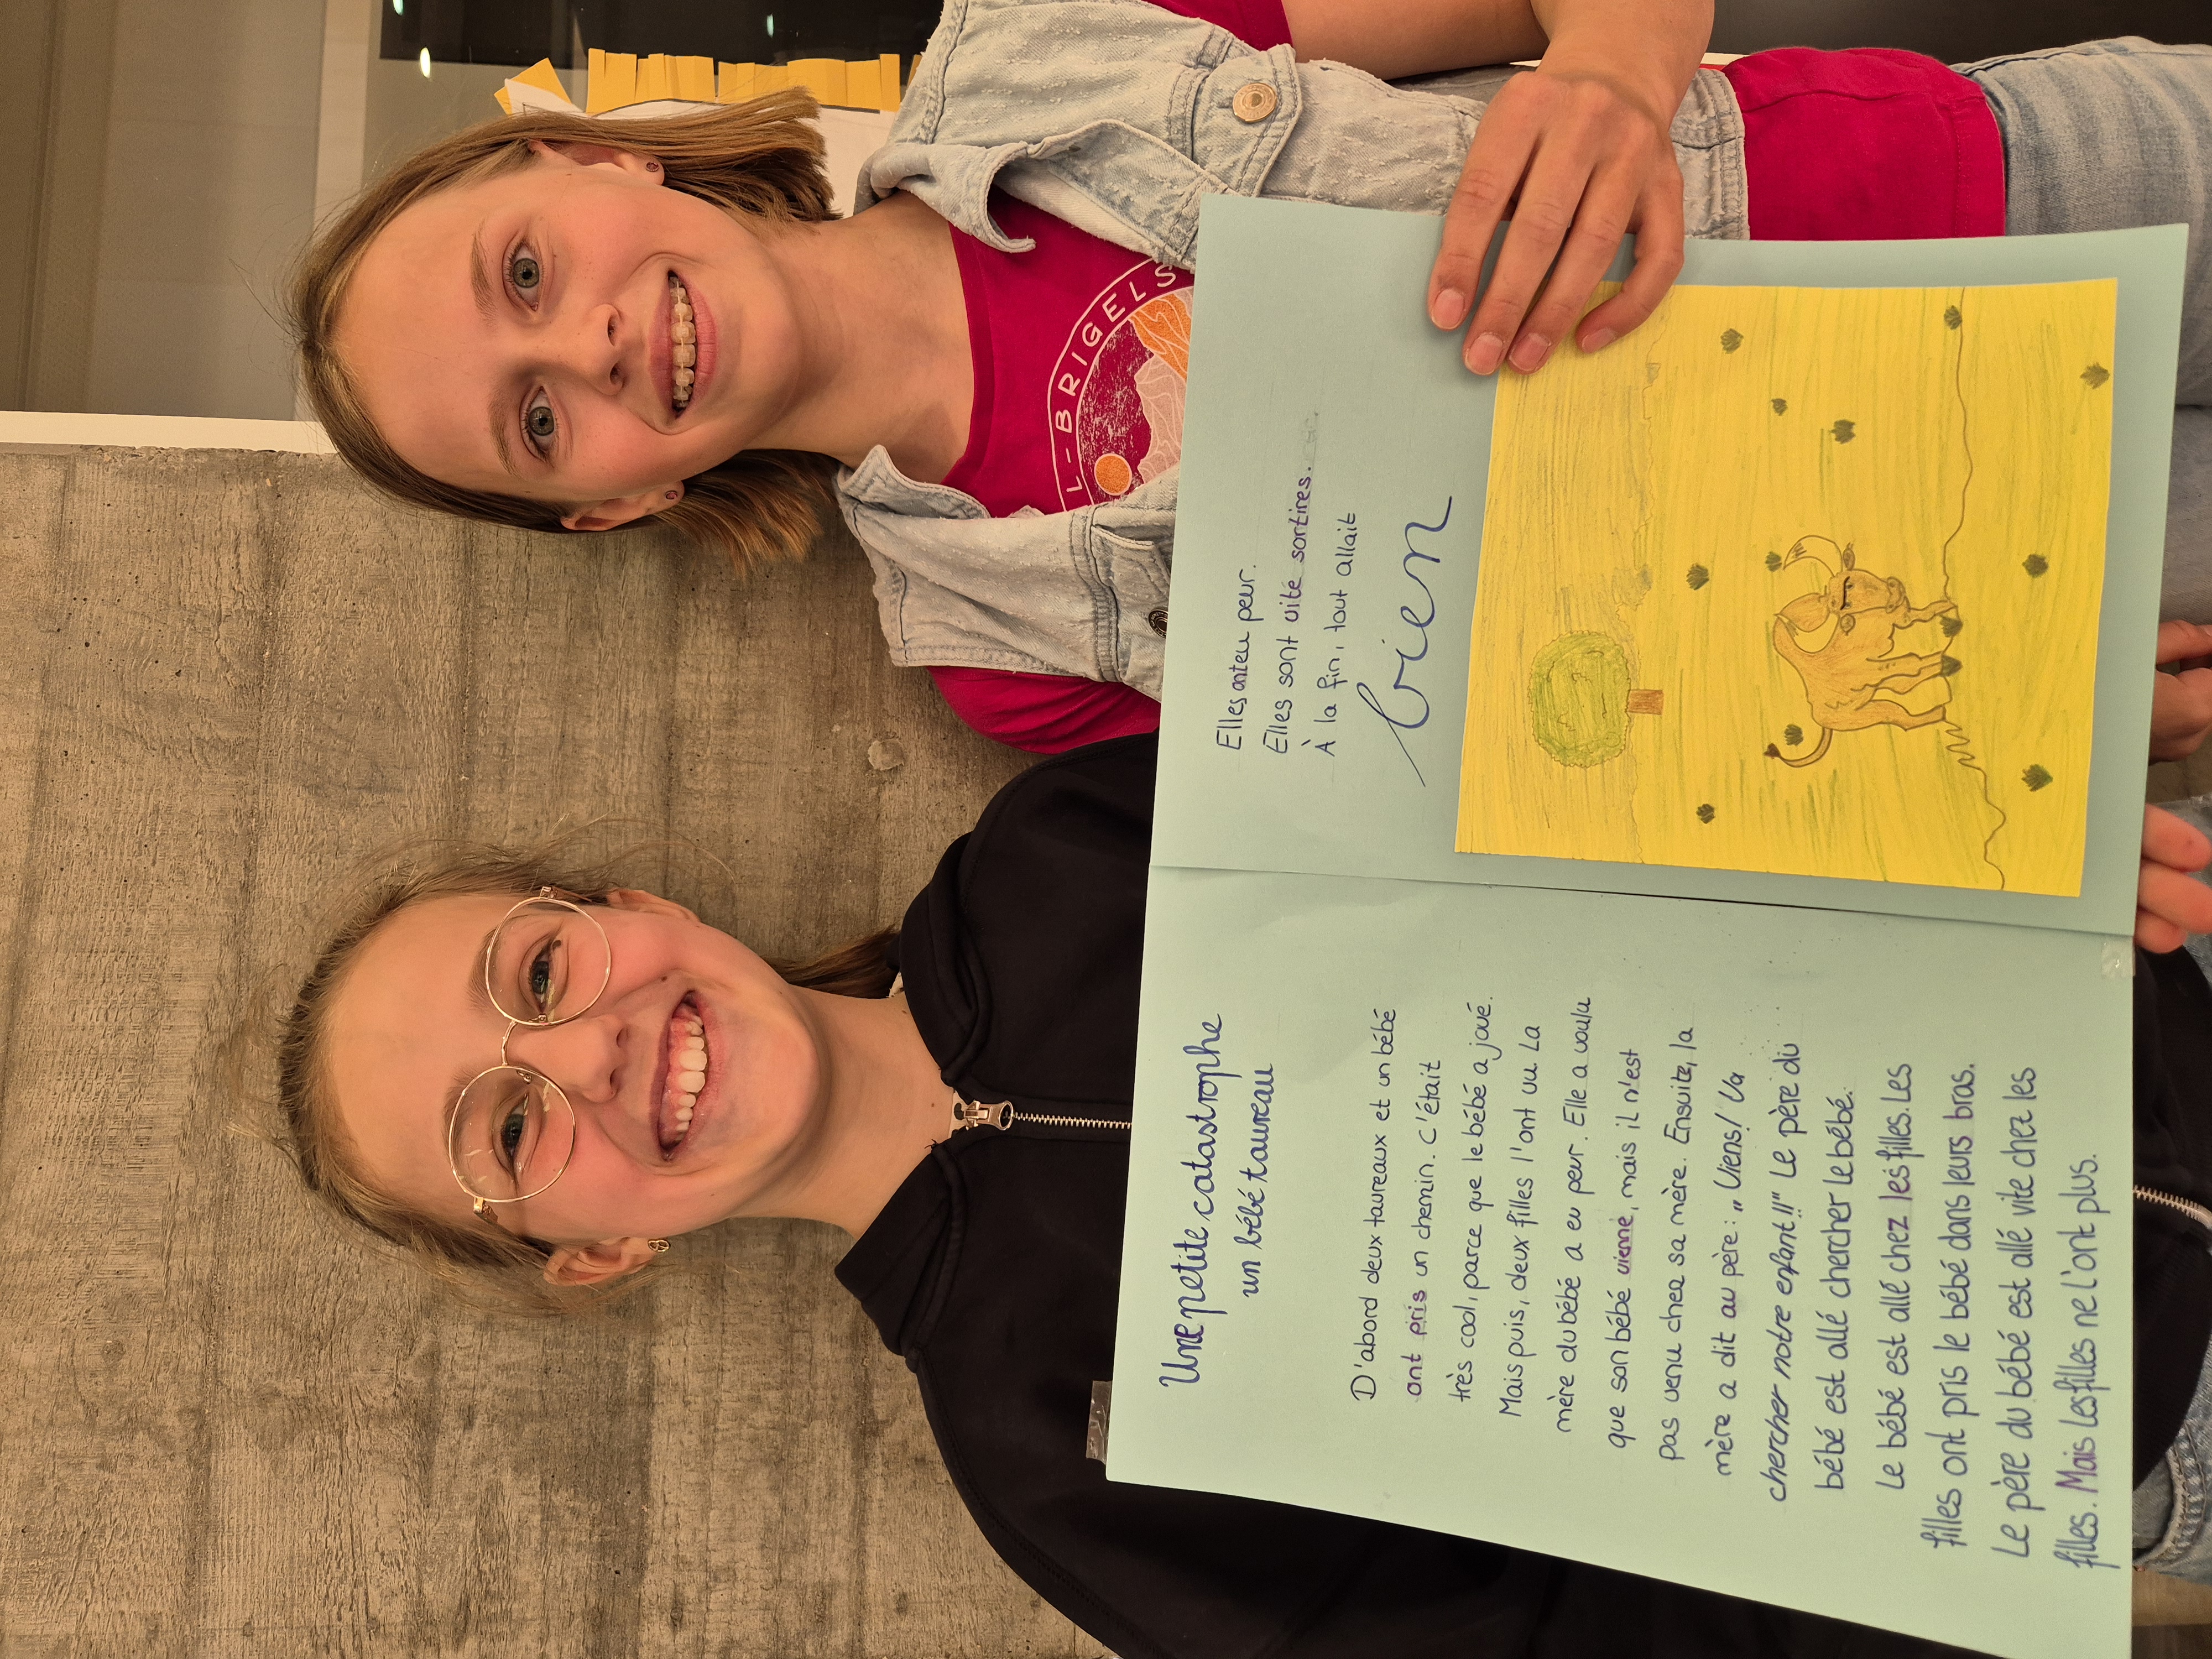 Une petite catastrophe
un bébé taureau
D'abord deux taureaux et un bébé
ont pris un chemin. C'était
très cool, parce que le bébé a joué.
Mais puis, deux filles l'ont vu La
mère du bébé a eu peur. Elle a voulu
que son bébé vienne, mais il n'est
pas venu chez sa mère. Ensuite, la
mère a dit au père: „Viens! Va
chercher notre enfant!!" Le père du
bébé est allé chercher le bébé.
Le bébé est allé chez les filles. Les
filles ont pris le bébé dans leurs bras.
Le père du bébé est allé vite chez les
filles. Mais les filles ne l'ont plus.
Elles ont eu peur.
Elles sont vite sortires.
À la fin, tout allait
bien
L-BRIGELS